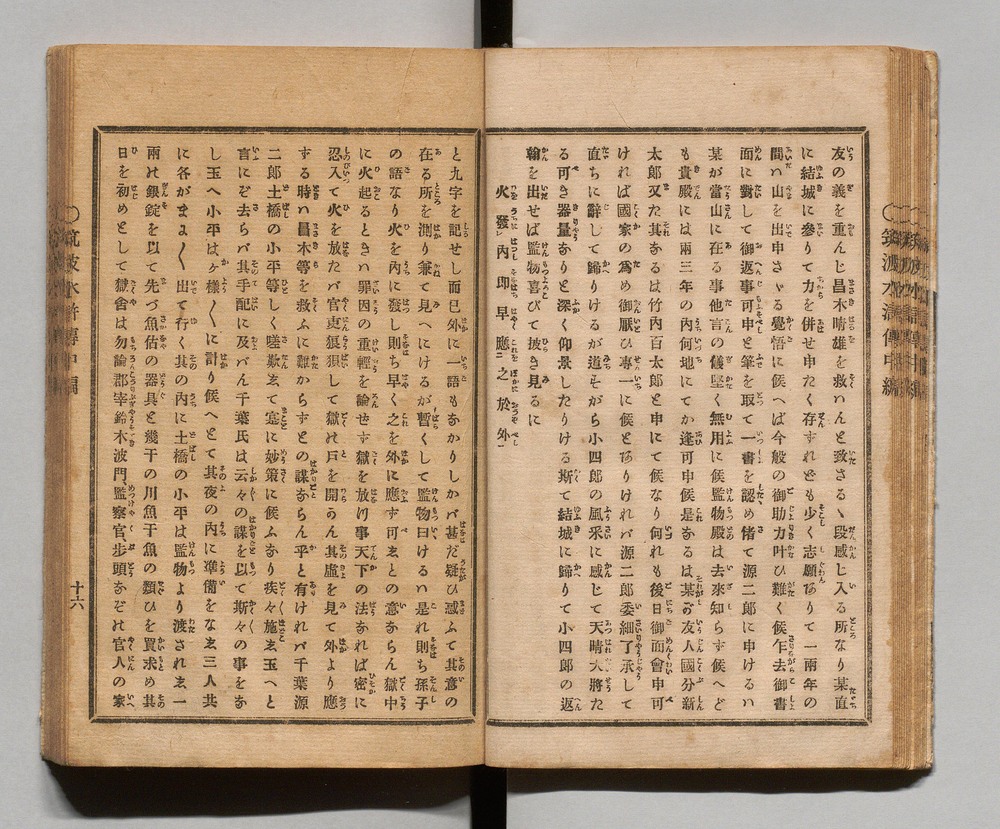 友の義を重んじ昌木晴雄を救ハんと致さるゝ段感じ入る所なり某直
に結城に參りて力を併せ申たく存ずれども少く志願ありて一兩年の
間ハ山を出申さゞる覺悟に候へば今般の御助力叶ひ難く候乍去御書
面に對して御返事可申と筆を取て一書を認め偖て源二郎に申けるハ
某が當山に在る事他言の儀堅く無用に候監物殿は去來知らず候へど
も貴殿には兩三年の內何地にてか逢可申候是なるは某の友人國分新
太郎又た其なるは竹內百太郎と申にて候なり何れも後日御面會申可
ければ國家の爲め御厭ひ專一に候とありけれバ源二郎委細了承して
直ちに辭して歸りけるが道すがら小四郎の風采に感じて天晴大將た
る可き器量なりと深く仰景したりける斯て結城に歸りて小四郎の返
翰を出せば監物喜びて披き見るに
火發內即早應之於外
と九字を記せし而已外に一語もなかりしかバ甚だ疑ひ惑ふて其意の
在る所を測り兼て見へにけるが暫くして監物曰けるハ是れ則ち孫子
の語なり火を內に發し則ち早く之を外に應ず可ゑとの意ならん獄中
に火起るときハ罪囚の重輕を論せず獄を放つ事天下の法なれば密に
忍入て火を放たバ官吏狼狽して獄の戶を開うん其虛を見て外より應
ずる時ハ昌木等を救ふに難からずとの謀ならん乎と有けれバ千葉源
二郎土橋の小平等しく嗟歎ゑて寔に妙策に候ふなり疾々施ゑ玉へと
言にぞ去らバ其手配に及バん千葉氏は云々の謀を以て斯々の事をな
し玉へ小平はヶ樣〱に計り候へとて其夜の內に準備をなゑ三人共
に各がまゝ〱出て行く其の內に土橋の小平は監物より渡されゑ一
兩の銀錠を以て先づ魚估の器具と幾干の川魚干魚の類ひを買求め其
日を初めとして獄舍は勿論郡宰鈴木波門、監察官、步頭なぞの官人の家
筑波水滸傳中編
十六
筑波水滸傳中編